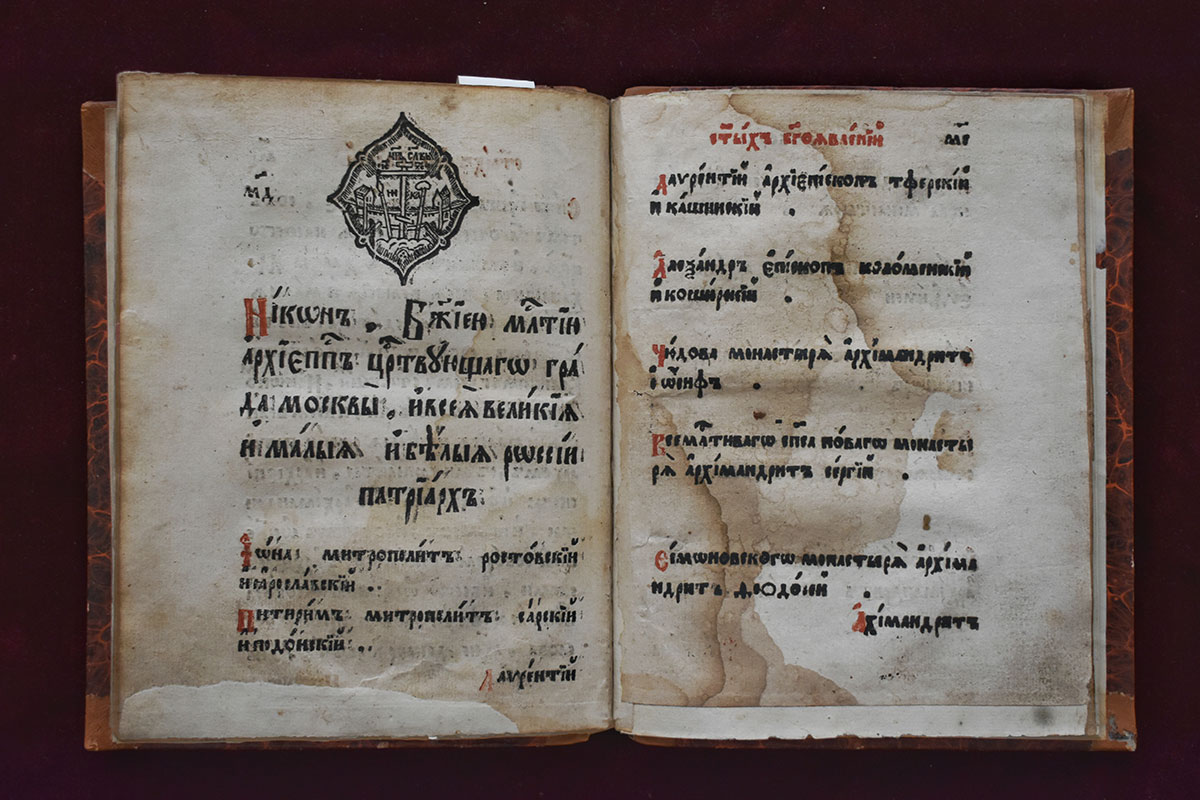 м҃д
Ні́кѡнъ . Бж҃їею мл҃тїю
а҆рхїеп҃пъ црⷭ҇твꙋющагѡ гра́
да москвы̀ . и҆ всеѧ̀ вели́кїѧ
и҆ ма́лыѧ и҆ бѣ́лыѧ рѡссі́и
патрїа́рхъ
І҆ѡ́на митрополи́тъ росто́вскїй
и ꙗ҆росла́вскїй ..
Питири́мъ митрополи́тъ са́рскїй
и подо́нскїй ..
Лаѵре́нтїй
ст҃ы́хъ бг҃оѧвле́нїй м҃е
Лаѵре́нтїй а҆рхїепи́скопъ тферскі́й
и ка́шинскїй .
А҆леѯа́ндръ є҆пи́скопъ коло́менскїй
и коши́рскїй .
Чю́дова монастырѧ̀ а҆рхїмандри́тъ
і҆ѡ́сифъ .
Всемлⷭ҇тиваго сп҃са но́вагѡ монасты
рѧ̀ а҆рхїмандри́тъ се́ргїй .
Сѷмѡновскогѡ монастырѧ̀ а҆рхїма
ндри́тъ ѳеодо́сїй .
А҆рхїмандри́тъ